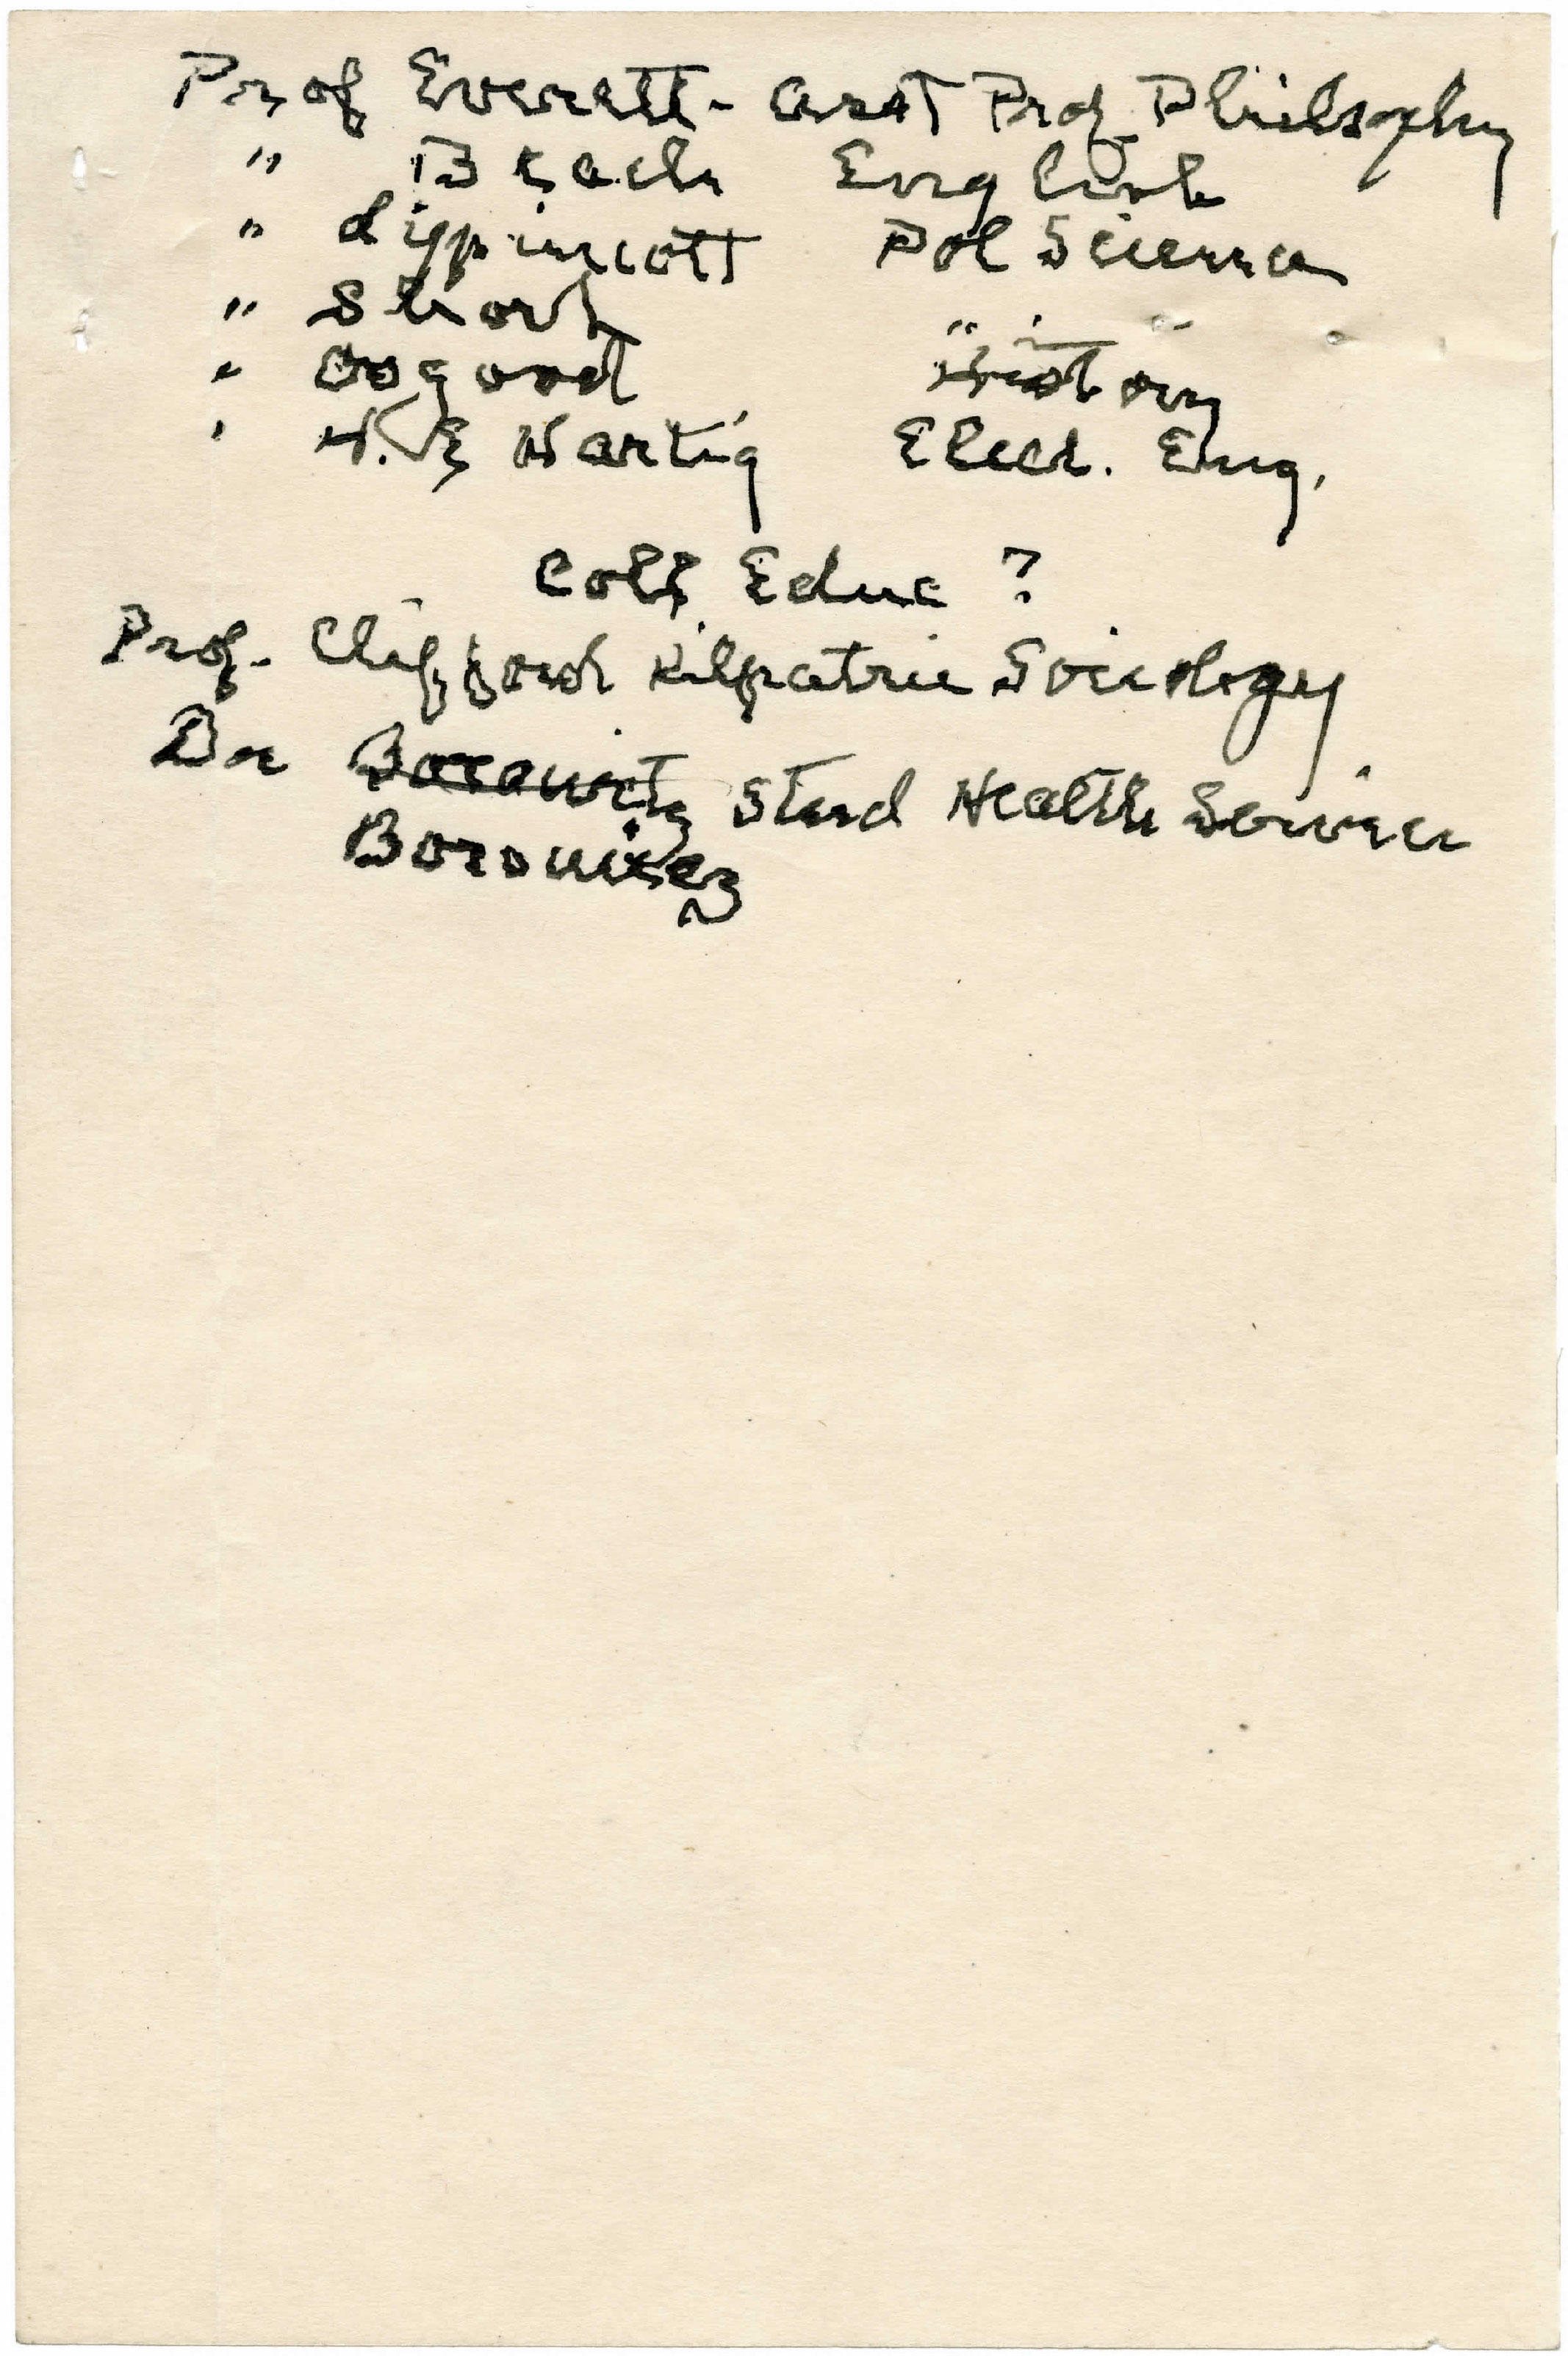 Prof Everett - Asst Prof Philsophy
" Beach English
" Lippincott Pol Science
" Short " "
" Osgood History
" H.E Hartig Elect. Eng.
Coll Educ ?
Prof. Clifford Kilpatric Sociology
Dr Borowitz Stud Health Service
Borowitz